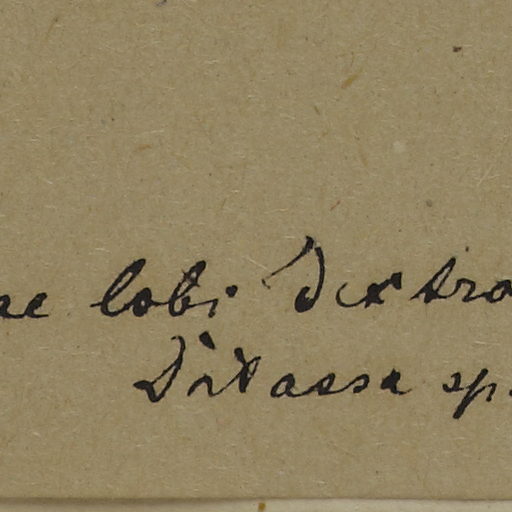 ae lobi dextro
Ditassa sp.